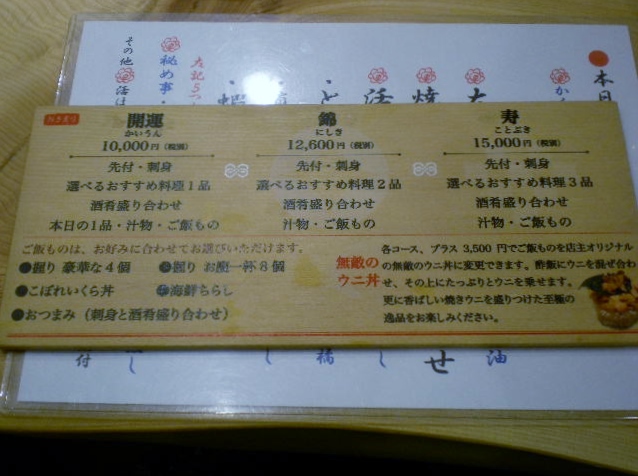 開運
かいうん
10,000円(税別)
先付・刺身
選べるおすすめ料理1品
酒肴盛り合わせ
本日の1品・汁物・ご飯もの
錦
にしき
12,600円(税別)
先付・刺身
選べるおすすめ料理2品
酒肴盛り合わせ
汁物・ご飯もの
寿
ことぶき
15,000円(税別)
先付・刺身
選べるおすすめ料理3品
酒肴盛り合わせ
汁物・ご飯もの
ご飯ものは、お好みに合わせてお選びいただけます。
●握り 豪華な4個
握り お腹一杯8個
●こぼれいくら丼
海鮮ちらし
●おつまみ(刺身と酒肴盛り合わせ)
無敵の
ウニ丼
各コース、プラス3,500円でご飯ものを店主オリジナル
の無敵のウニ丼に変更できます。酢飯にウニを混ぜ合わ
せ、その上にたっぷりとウニを乗せます。
更に香ばしい焼きウニを盛りつけた至極の
逸品をお楽しみください。
本日
活
焼
秘め事
その他
付
油
せ